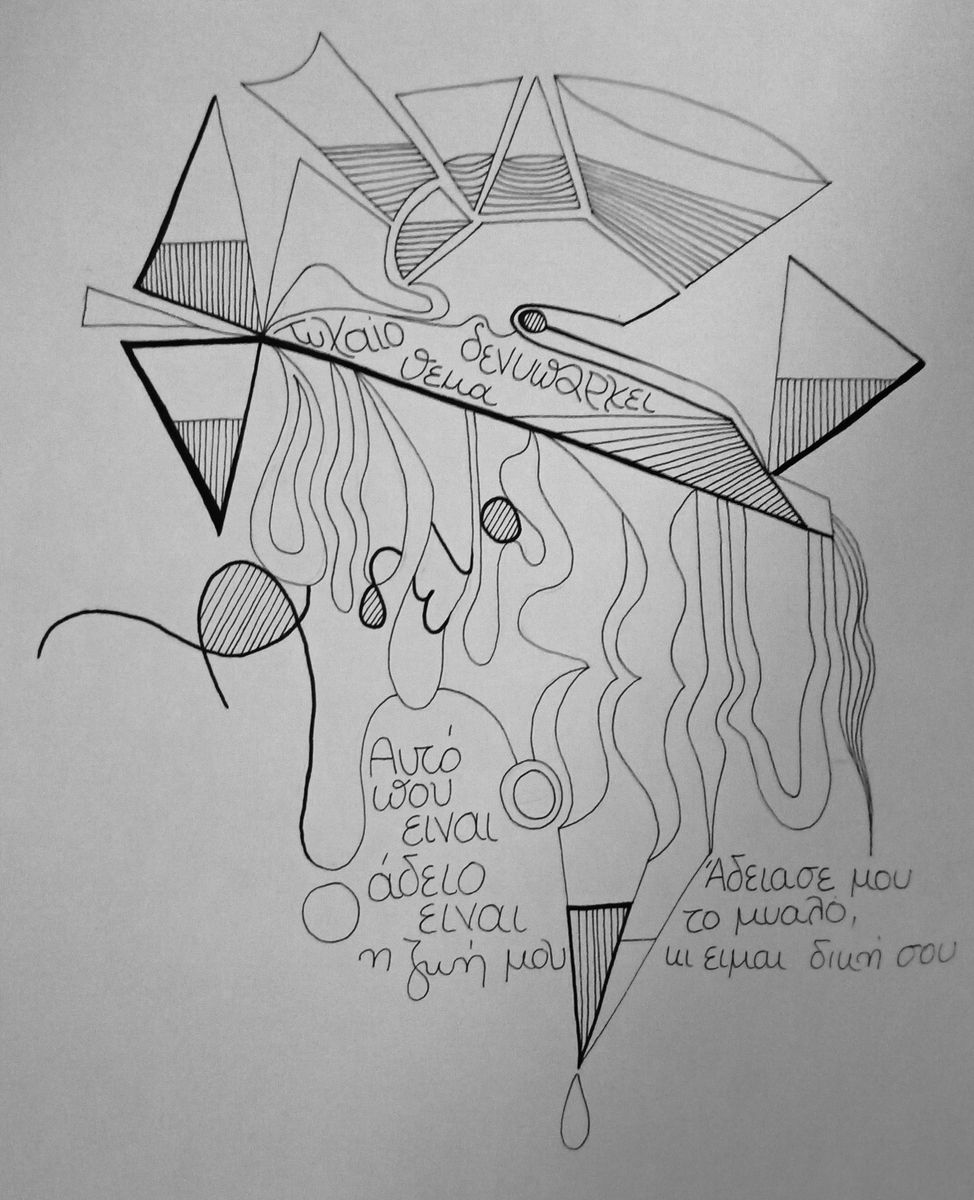 τυχαίο
θεμα
δενυπαρχει
δεν
Αυτό
που
ειναι
άδειο
ειναι
η ζωή μου
Άδειασε μου
το μυαλό,
κι ειμαι δική σου